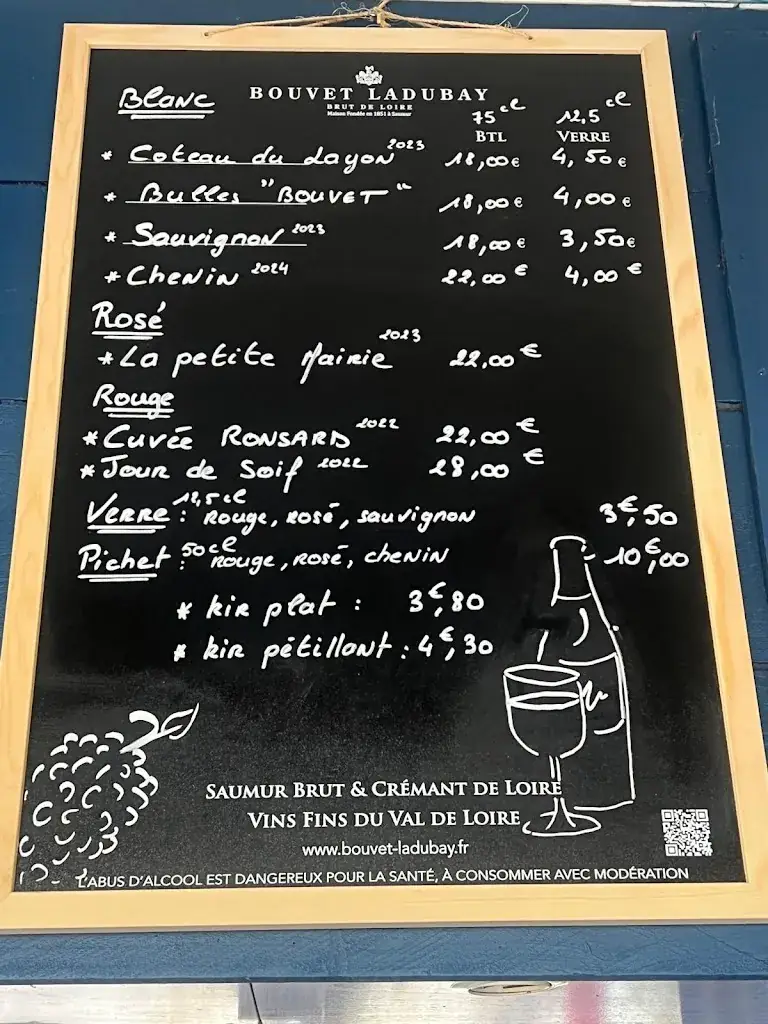 BOUVET LADUBAY
BRUT DE LOIRE
Maison Fondée en 1851 à Saumur
Blanc 75 cl 12,5 cl
BTL VERRE
* Coteau du Layon 2023 18,00 € 4,50 €
* Bulles "BOUVET" 18,00 € 4,00 €
* Sauvignon 2023 18,00 € 3,50 €
* Chenin 2024 22,00 € 4,00 €
Rosé
* La petite Mairie 2023 22,00 €
Rouge
* Cuvée RONSARD 2022 22,00 €
* Jour de Soif 2022 28,00 €
Verre 12,5 cl : Rouge, rosé, sauvignon 3€,50
Pichet : 50 cl Rouge, rosé, chenin 10€,00
* kir plat : 3€,80
* kir pétillant : 4€,30
SAUMUR BRUT & CRÉMANT DE LOIRE
VINS FINS DU VAL DE LOIRE
www.bouvet-ladubay.fr
L'ABUS D'ALCOOL EST DANGEREUX POUR LA SANTÉ, À CONSOMMER AVEC MODÉRATION